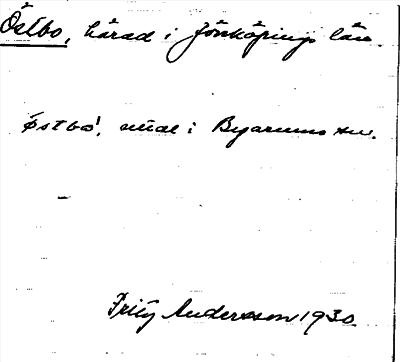 Östbo, härad i Jönköpings län.
östbo', uttal i Byarums sn.
Fritz Andersson 1930